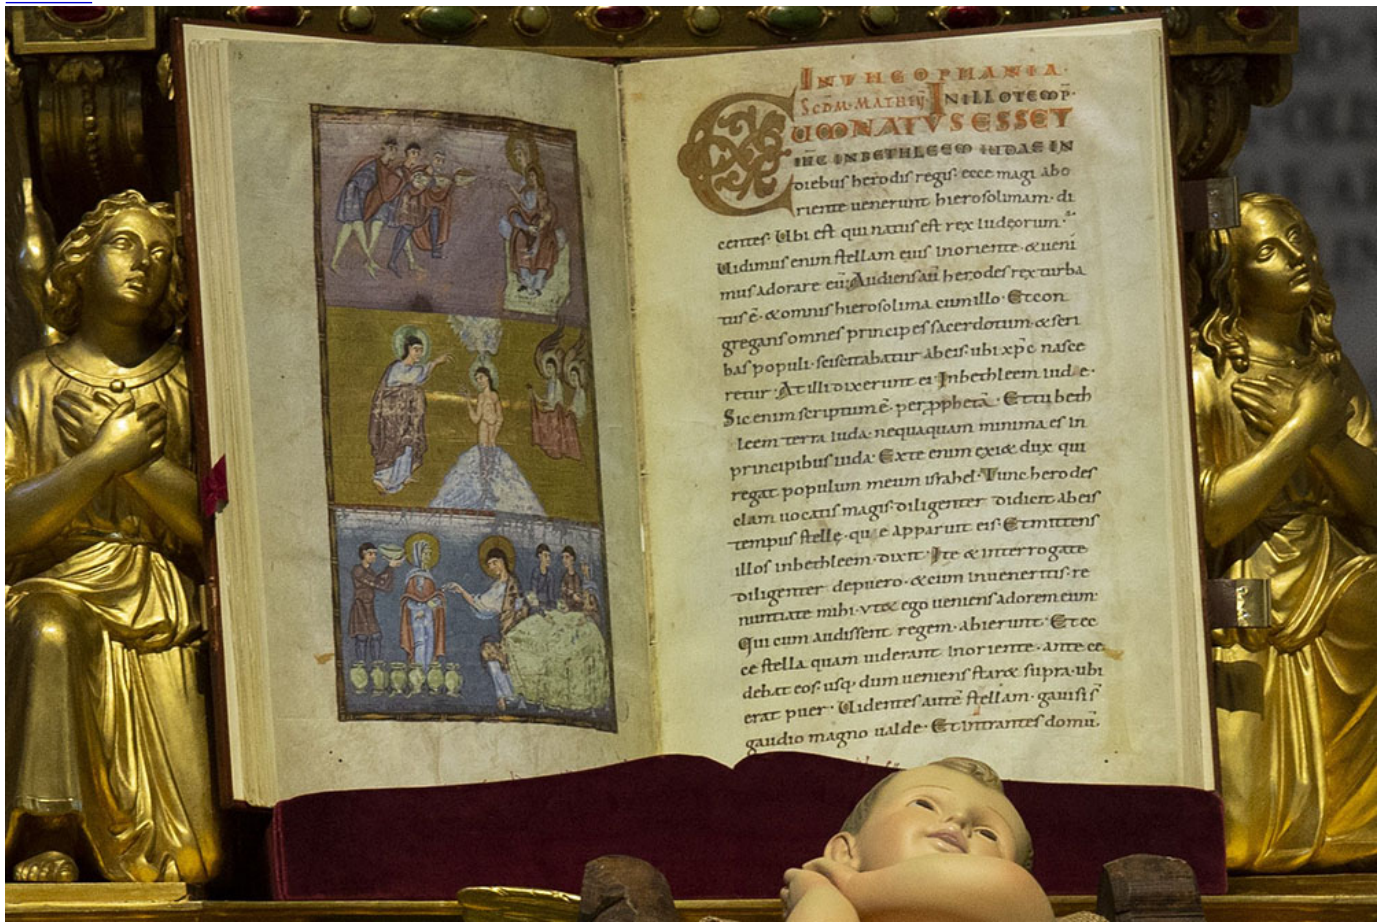 IN THEOPHANIA·
SCDM· MATHEŪ· IN ILLO TEMP̄·
CUM NATVS ESSET
IHC IN BETHLEEM IUDAE IN
diebus herodis regis· ecce magi abo
riente uenerunt hierosolimam· di
centes· Ubi est qui natus est rex iudeorum·
Uidimus enim stellam eius in oriente· & ueni
mus adorare eū· Audiens aū herodes rex turba
tus ē· & omnis hierosolima cum illo· Et con
gregans omnes principes sacerdotum· & scri
bas populi· sciscitabatur ab eis· ubi xp̄c nasce
retur· At illi dixerunt ei· In bethleem iude·
Sic enim scriptum ē· per pphetā· Et tu beth
leem terra iuda· nequaquam minima es in
principibus iuda· Ex te enim exi& dux qui
regat populum meum israhel· Tunc herodes
clam uocatis magis· diligenter didicit ab eis
tempus stellę· quae apparuit eis· Et mittens
illos in bethleem· dixit· Ite & interrogate
diligenter de puero· & cum inueneritis· re
nuntiate mihi· vt & ego ueniens adorem eum·
Qui cum audissent regem· abierunt· Et ec
ce stella quam uiderant in oriente· ante ce
debat eos· usq· dum ueniens star& supra· ubi
erat puer· Uidentes autē stellam· gauisi s̄
gaudio magno ualde· Et intrantes domū·